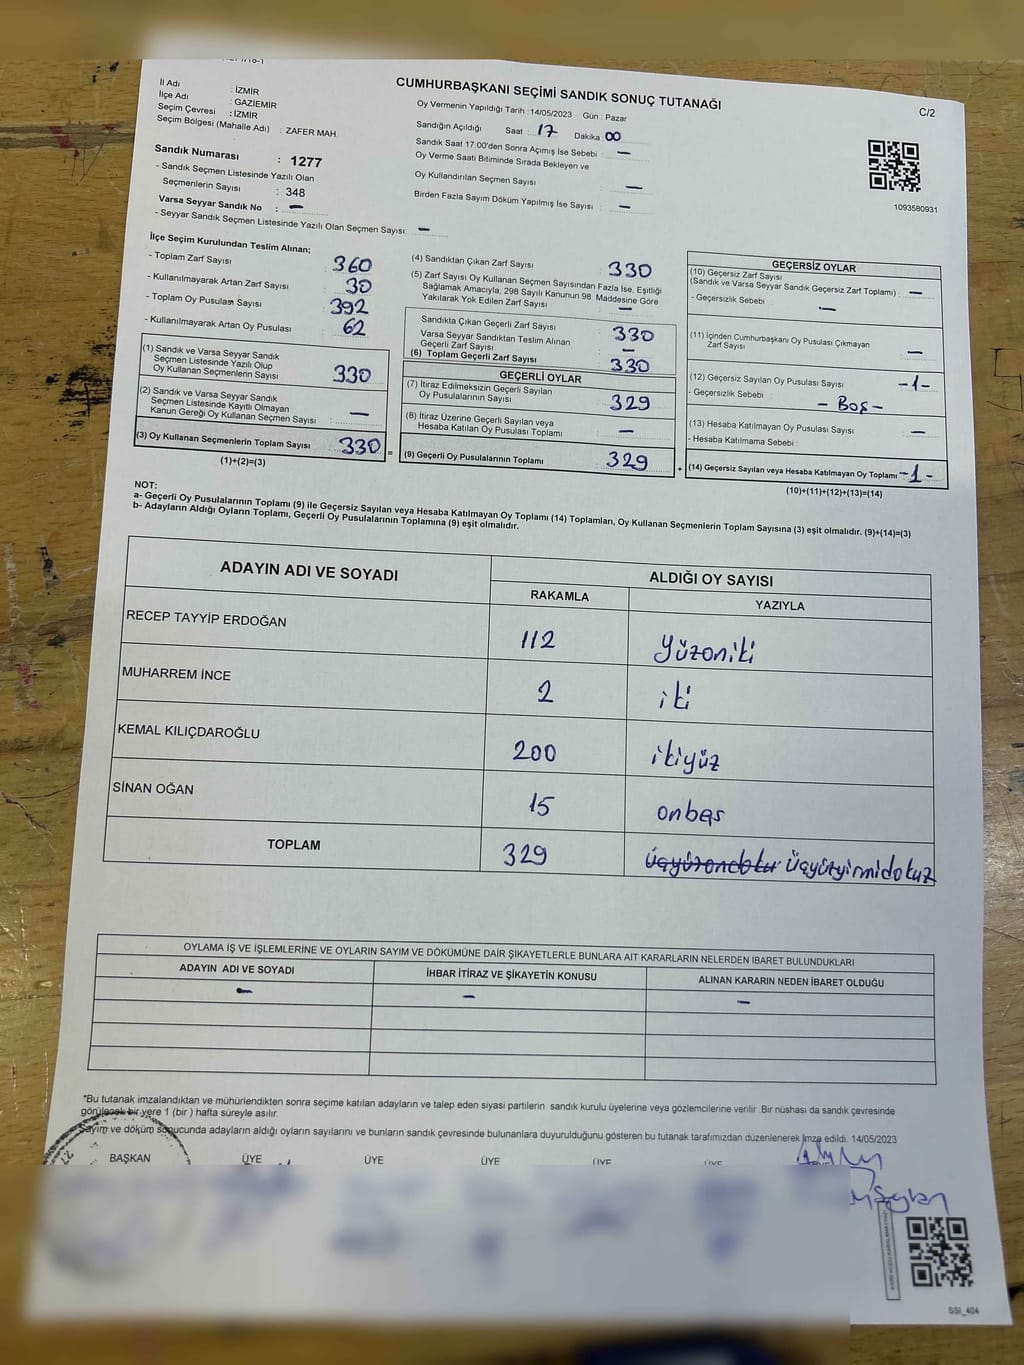 CUMHURBAŞKANI SEÇİMİ SANDIK SONUÇ TUTANAĞI
C/2
İl Adı : İZMİR
İlçe Adı : GAZİEMİR
Seçim Çevresi : İZMİR
Seçim Bölgesi (Mahalle Adı) : ZAFER MAH.
Sandık Numarası : 1277
- Sandık Seçmen Listesinde Yazılı Olan
Seçmenlerin Sayısı : 348
Varsa Seyyar Sandık No : —
- Seyyar Sandık Seçmen Listesinde Yazılı Olan Seçmen Sayısı: —
Oy Vermenin Yapıldığı Tarih : 14/05/2023 Gün : Pazar
Sandığın Açıldığı Saat : 17 Dakika 00
Sandık Saat 17:00'den Sonra Açımış İse Sebebi : —
Oy Verme Saati Bitiminde Sırada Bekleyen ve
Oy Kullandırılan Seçmen Sayısı : —
Birden Fazla Sayım Döküm Yapılmış İse Sayısı : —
1093580931
İlçe Seçim Kurulundan Teslim Alınan;
- Toplam Zarf Sayısı : 360
- Kullanılmayarak Artan Zarf Sayısı : 30
- Toplam Oy Pusulası Sayısı : 392
- Kullanılmayarak Artan Oy Pusulası : 62
(1) Sandık ve Varsa Seyyar Sandık
Seçmen Listesinde Yazılı Olup
Oy Kullanan Seçmenlerin Sayısı : 330
(2) Sandık ve Varsa Seyyar Sandık
Seçmen Listesinde Kayıtlı Olmayan
Kanun Gereği Oy Kullanan Seçmen Sayısı : —
(3) Oy Kullanan Seçmenlerin Toplam Sayısı : 330 =
(1)+(2)=(3)
(4) Sandıktan Çıkan Zarf Sayısı : 330
(5) Zarf Sayısı Oy Kullanan Seçmen Sayısından Fazla İse, Eşitliği
Sağlamak Amacıyla, 298 Sayılı Kanunun 98. Maddesine Göre
Yakılarak Yok Edilen Zarf Sayısı : —
Sandıkta Çıkan Geçerli Zarf Sayısı : 330
Varsa Seyyar Sandıktan Teslim Alınan
Geçerli Zarf Sayısı : —
(6) Toplam Geçerli Zarf Sayısı : 330
GEÇERLİ OYLAR
(7) İtiraz Edilmeksizin Geçerli Sayılan
Oy Pusulalarının Sayısı : 329
(8) İtiraz Üzerine Geçerli Sayılan veya
Hesaba Katılan Oy Pusulası Toplamı : —
(9) Geçerli Oy Pusulalarının Toplamı : 329 +
GEÇERSİZ OYLAR
(10) Geçersiz Zarf Sayısı
(Sandık ve Varsa Seyyar Sandık Geçersiz Zarf Toplamı) : —
- Geçersizlik Sebebi : —
(11) İçinden Cumhurbaşkanı Oy Pusulası Çıkmayan
Zarf Sayısı : —
(12) Geçersiz Sayılan Oy Pusulası Sayısı : -1-
- Geçersizlik Sebebi : - Boş -
(13) Hesaba Katılmayan Oy Pusulası Sayısı : —
- Hesaba Katılmama Sebebi :
(14) Geçersiz Sayılan veya Hesaba Katılmayan Oy Toplamı -1-
(10)+(11)+(12)+(13)=(14)
NOT:
a- Geçerli Oy Pusulalarının Toplamı (9) ile Geçersiz Sayılan veya Hesaba Katılmayan Oy Toplamı (14) Toplamları, Oy Kullanan Seçmenlerin Toplam Sayısına (3) eşit olmalıdır. (9)+(14)=(3)
b- Adayların Aldığı Oyların Toplamı, Geçerli Oy Pusulalarının Toplamına (9) eşit olmalıdır.
ADAYIN ADI VE SOYADI ALDIĞI OY SAYISI
RAKAMLA YAZIYLA
RECEP TAYYİP ERDOĞAN 112 yüzoniki
MUHARREM İNCE 2 iki
KEMAL KILIÇDAROĞLU 200 ikiyüz
SİNAN OĞAN 15 onbeş
TOPLAM 329 üçyüzyirmidokuz
OYLAMA İŞ VE İŞLEMLERİNE VE OYLARIN SAYIM VE DÖKÜMÜNE DAİR ŞİKAYETLERLE BUNLARA AİT KARARLARIN NELERDEN İBARET BULUNDUKLARI
ADAYIN ADI VE SOYADI İHBAR İTİRAZ VE ŞİKAYETİN KONUSU ALINAN KARARIN NEDEN İBARET OLDUĞU
— — —
*Bu tutanak imzalandıktan ve mühürlendikten sonra seçime katılan adayların ve talep eden siyasi partilerin sandık kurulu üyelerine veya gözlemcilerine verilir. Bir nüshası da sandık çevresinde
görülecek bir yere 1 (bir ) hafta süreyle asılır.
Sayım ve döküm sonucunda adayların aldığı oyların sayılarını ve bunların sandık çevresinde bulunanlara duyurulduğunu gösteren bu tutanak tarafımızdan düzenlenerek imza edildi. 14/05/2023
BAŞKAN ÜYE ÜYE ÜYE ÜYE ÜYE
SSI_404